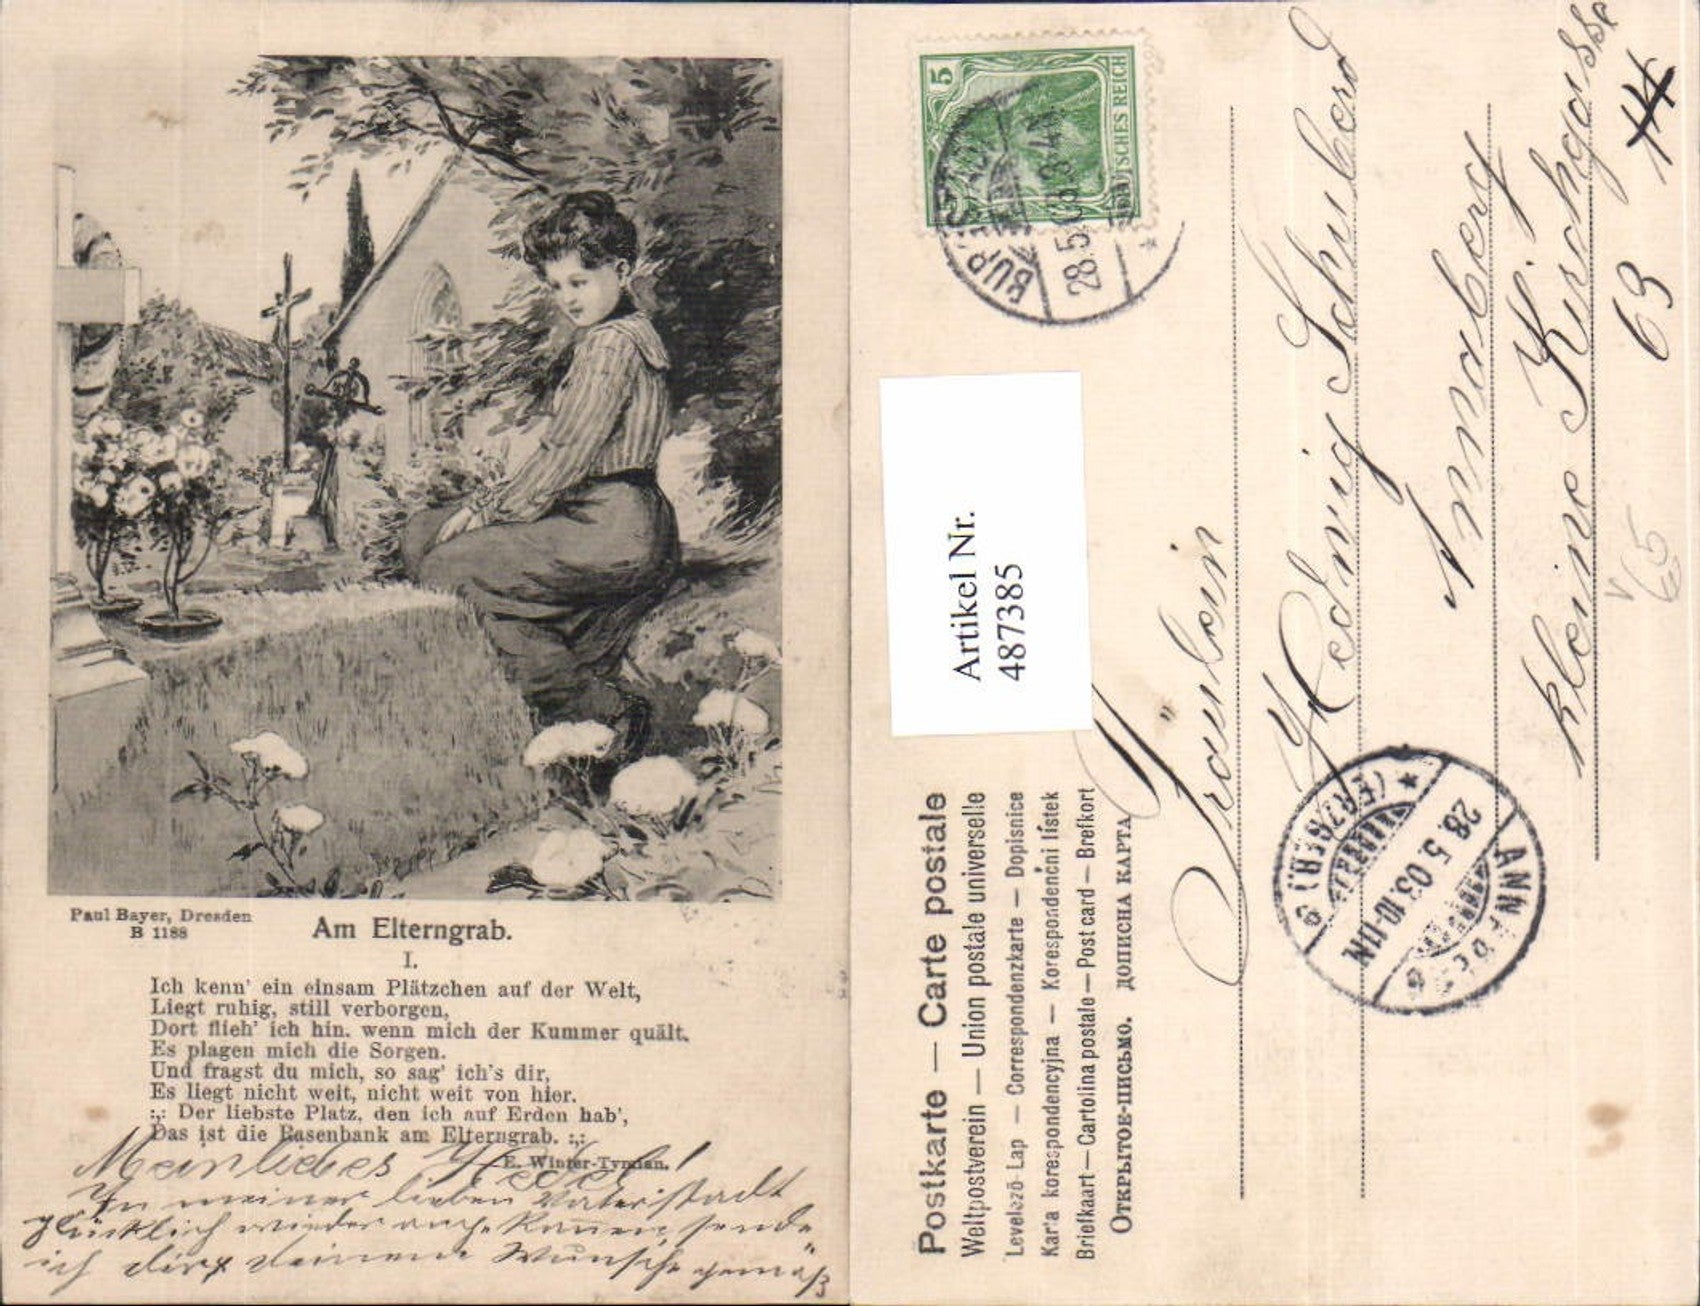 Paul Bayer, Dresden
B 1188
Am Elterngrab.
I.
Ich kenn' ein einsam Plätzchen auf der Welt,
Liegt ruhig, still verborgen,
Dort flieh' ich hin. wenn mich der Kummer quält.
Es plagen mich die Sorgen.
Und fragst du mich, so sag' ich's dir,
Es liegt nicht weit, nicht weit von hier.
:,: Der liebste Platz. den ich auf Erden hab',
Das ist die Rasenbank am Elterngrab. :,:
E. Winter-Tymian.
Mein liebes Hedel!
In meiner lieben Vaterstadt
glücklich wieder angekommen, sende
ich dir deinem Wunsche gemäß
5
DEUTSCHES REICH
BURGSTÄDT
28.5.03.3-4N.
Artikel Nr.
487385
Postkarte — Carte postale
Weltpostverein — Union postale universelle
Levelező-Lap — Correspondenzkarte — Dopisnice
Karta korespondencyjna — Korespondenční lístek
Briefkaart — Cartolina postale — Post card — Brefkort
Открытое-письмо. дописна карта
Fräulein
Hedwig Schuberd
Annaberg
kleine Kirchgasse
14
63
65
ANNABERG
(ERZGEB.)
28.5.03.10-11N.